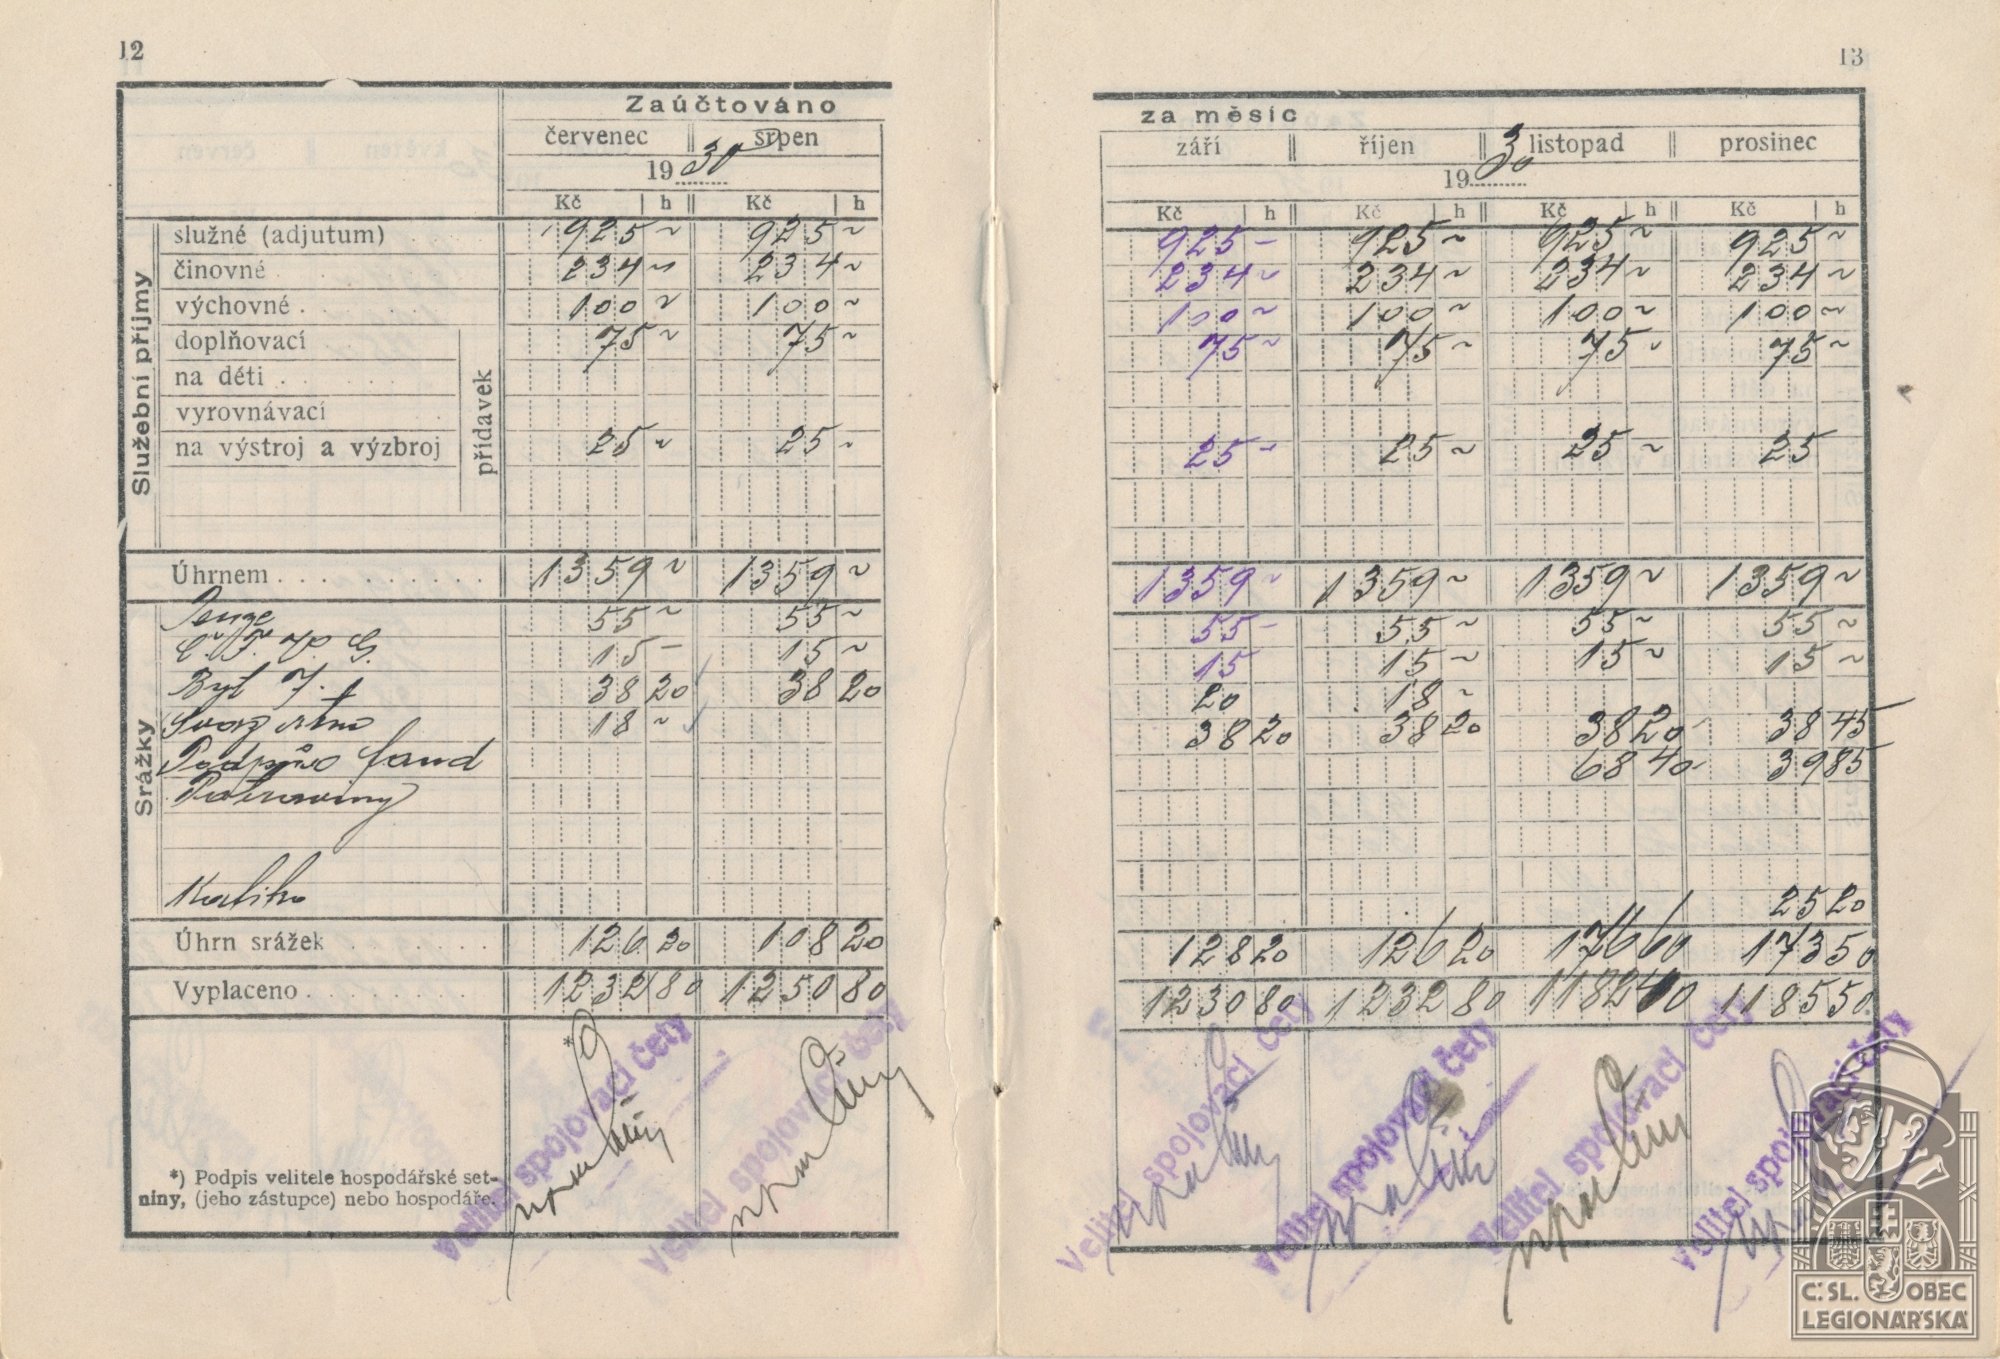 12
Zaúčtováno
červenec srpen
19 30
Kč h Kč h
Služební příjmy
služné (adjutum) 925 ~ 925 ~
činovné 234 ~ 234 ~
výchovné 100 ~ 100 ~
doplňovací 75 ~ 75 ~
na děti
vyrovnávací
na výstroj a výzbroj 25 ~ 25 ~
přídavek
Úhrnem 1359 ~ 1359 ~
Srážky
Penze 55 ~ 55 ~
15 – 15 ~
Byt 38 20 38 20
18 ~
fond
Potraviny
Kolik
Úhrn srážek 126 20 108 20
Vyplaceno 1232 80 1250 80
*)
Velitel spojovací čety
Velitel spojovací čety
*) Podpis velitele hospodářské set-
niny, (jeho zástupce) nebo hospodáře.
13
za měsíc
září říjen listopad prosinec
19 30
Kč h Kč h Kč h Kč h
925 – 925 ~ 925 ~ 925 ~
234 ~ 234 ~ 234 ~ 234 ~
100 ~ 100 ~ 100 ~ 100 ~
75 ~ 75 ~ 75 ~ 75 ~
25 – 25 ~ 25 ~ 25
1359 ~ 1359 ~ 1359 ~ 1359 ~
55 – 55 ~ 55 ~ 55 ~
15 15 ~ 15 ~ 15 ~
20 18 ~
38 20 38 20 38 20 38 45
68 40 39 85
25 20
128 20 126 20 176 60 173 50
1230 80 1232 80 1182 40 1185 50
Velitel spojovací čety
Velitel spojovací čety
Velitel spojovací čety
Velitel spojovací čety
Č.SL. OBEC
LEGIONÁŘSKÁ